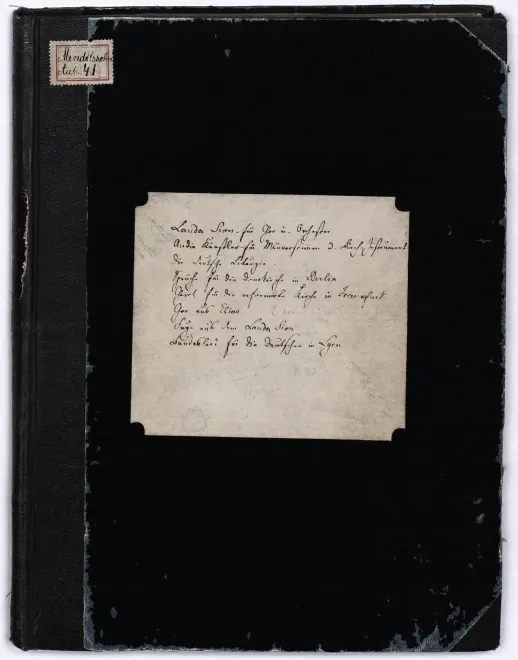 Mendelssohn
Aut. 41
Lauda Sion für Chor u. Orchester
An die Künstler für Männerstimmen u. Blechinstrumente
Die deutsche Liturgie
Sprüche für die Domkirche in Berlin
für die reformirte Kirche in Frankfurt
Chor aus Elias
Fuge aus dem Lauda Sion
für die Deutschen in Lyon